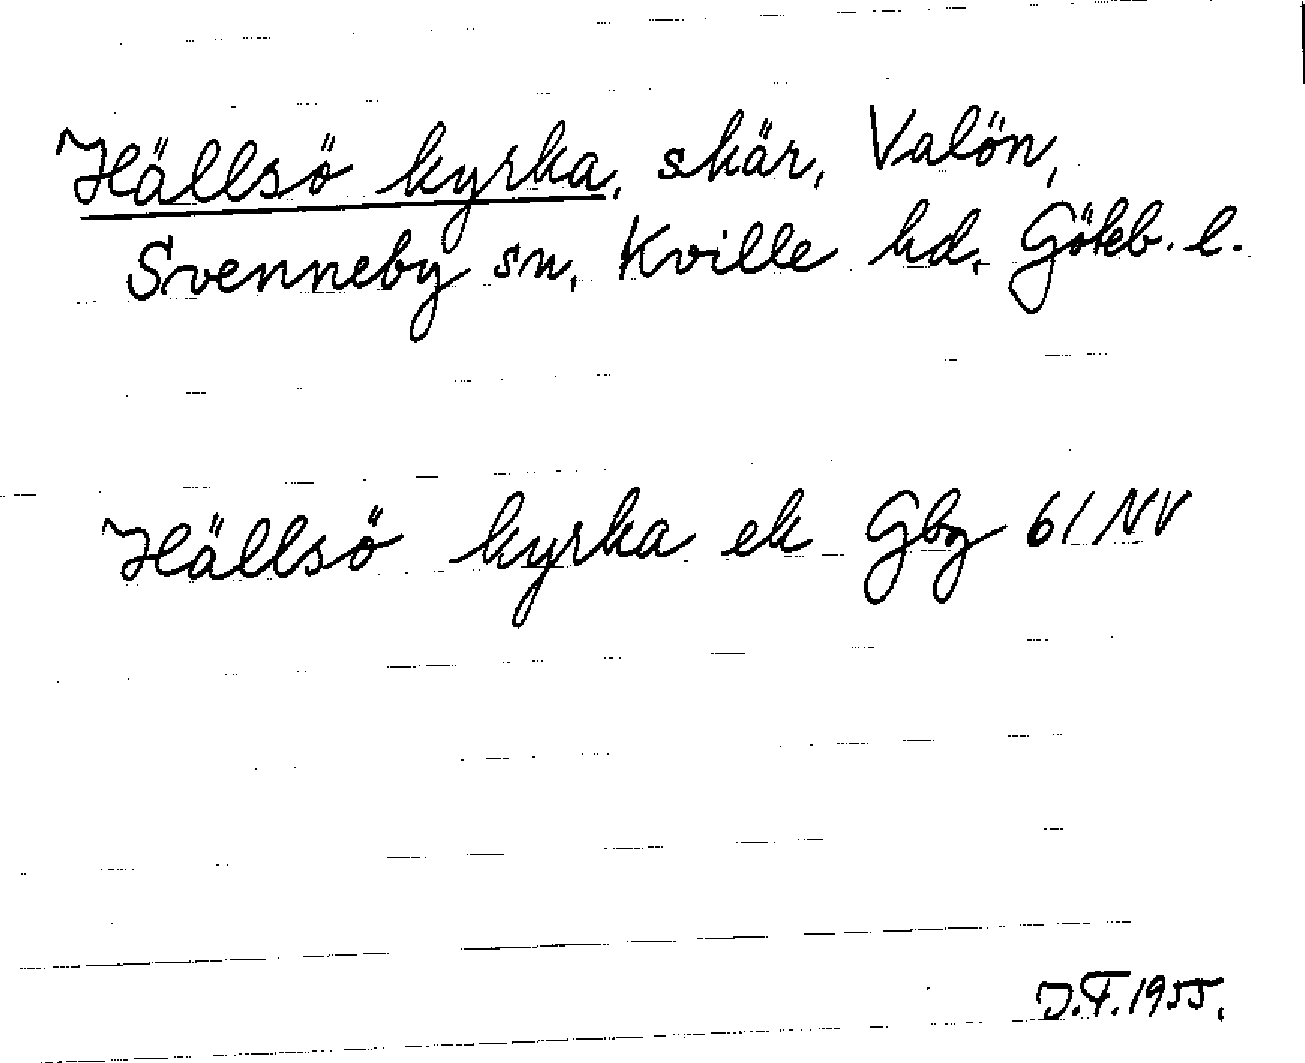 Hällsö kyrka, skär, Valön,
Svenneby sn, Kville hd, Göteb. l.
Hällsö kyrka ek Gbg 61 NV
J.F. 1955.